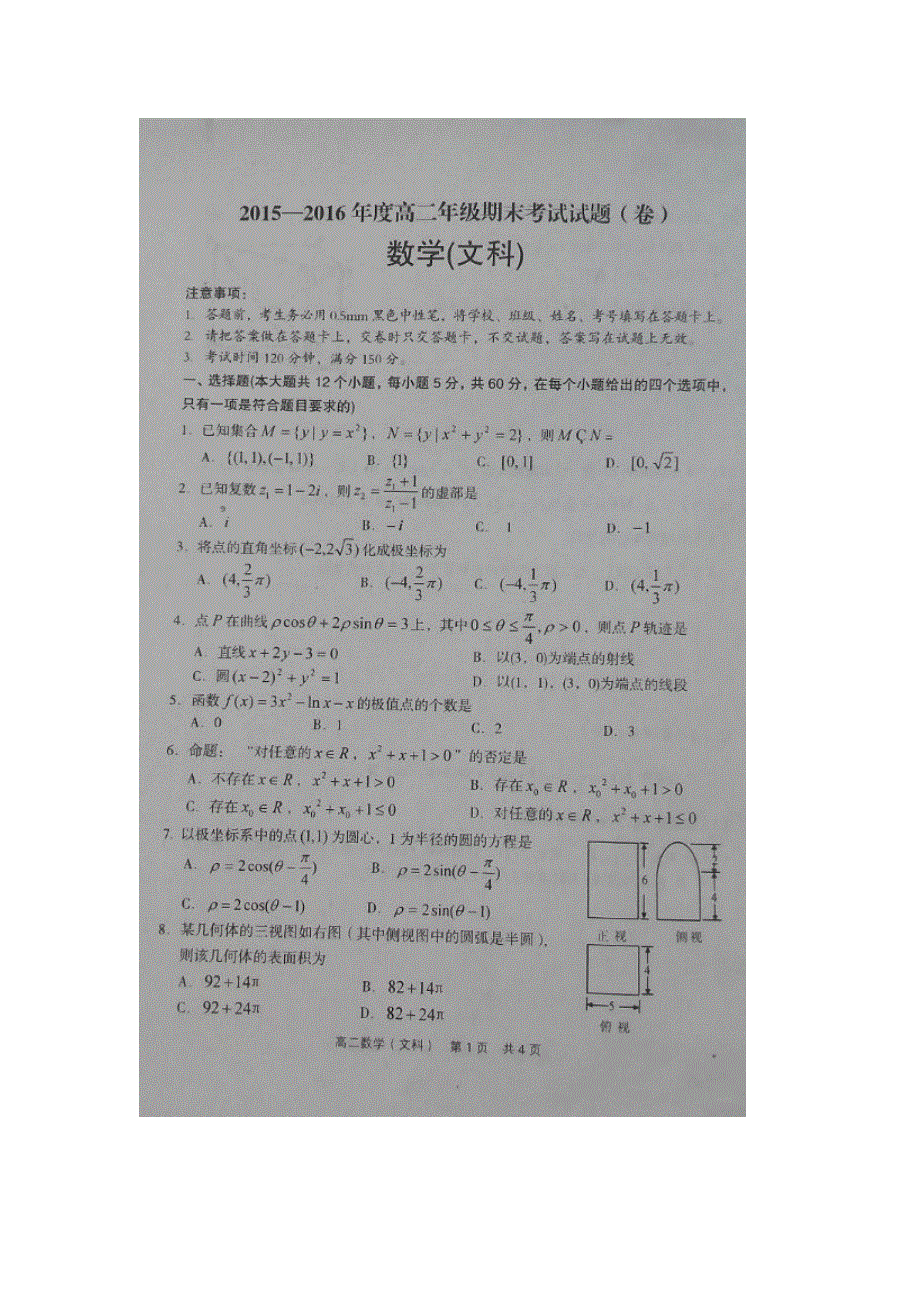 2015—2016 年度高二年级期末考试试题（卷）
数学(文科)
注意事项：
1. 答题前，考生务必用 0.5mm 黑色中性笔，将学校、班级、姓名、考号填写在答题卡上。
2. 请把答案做在答题卡上，交卷时只交答题卡，不交试题，答案写在试题上无效。
3. 考试时间 120 分钟，满分 150 分。
一、选择题(本大题共 12 个小题，每小题 5 分，共 60 分，在每个小题给出的四个选项中，
只有一项是符合题目要求的)
1. 已知集合 M = {y | y = x²}，N = {y | x² + y² = 2}，则 M Ç N =
A. {(1, 1),(−1, 1)} B. {1} C. [0, 1] D. [0, √2]
2. 已知复数 z₁ = 1 − 2i，则 z₂ = (z₁+1)/(z₁−1) 的虚部是
A. i B. −i C. 1 D. −1
3. 将点的直角坐标 (−2,2√3) 化成极坐标为
A. (4, 2/3 π) B. (−4, 2/3 π) C. (−4, 1/3 π) D. (4, 1/3 π)
4. 点 P 在曲线 ρcosθ + 2ρsinθ = 3 上，其中 0 ≤ θ ≤ π/4, ρ > 0，则点 P 轨迹是
A. 直线 x + 2y − 3 = 0 B. 以(3，0)为端点的射线
C. 圆 (x − 2)² + y² = 1 D. 以(1，1)，(3，0)为端点的线段
5. 函数 f(x) = 3x² − ln x − x 的极值点的个数是
A. 0 B. 1 C. 2 D. 3
6. 命题： “对任意的 x ∈ R，x² + x + 1 > 0” 的否定是
A. 不存在 x ∈ R，x² + x + 1 > 0 B. 存在 x₀ ∈ R，x₀² + x₀ + 1 > 0
C. 存在 x₀ ∈ R，x₀² + x₀ + 1 ≤ 0 D. 对任意的 x ∈ R，x² + x + 1 ≤ 0
7. 以极坐标系中的点 (1,1) 为圆心，1 为半径的圆的方程是
A. ρ = 2cos(θ − π/4) B. ρ = 2sin(θ − π/4)
C. ρ = 2cos(θ − 1) D. ρ = 2sin(θ − 1)
8. 某几何体的三视图如右图（其中侧视图中的圆弧是半圆），
则该几何体的表面积为
A. 92 + 14π B. 82 + 14π
C. 92 + 24π D. 82 + 24π
6
2
4
正 视 侧 视
4
5
俯 视
高二数学（文科） 第 1 页 共 4 页